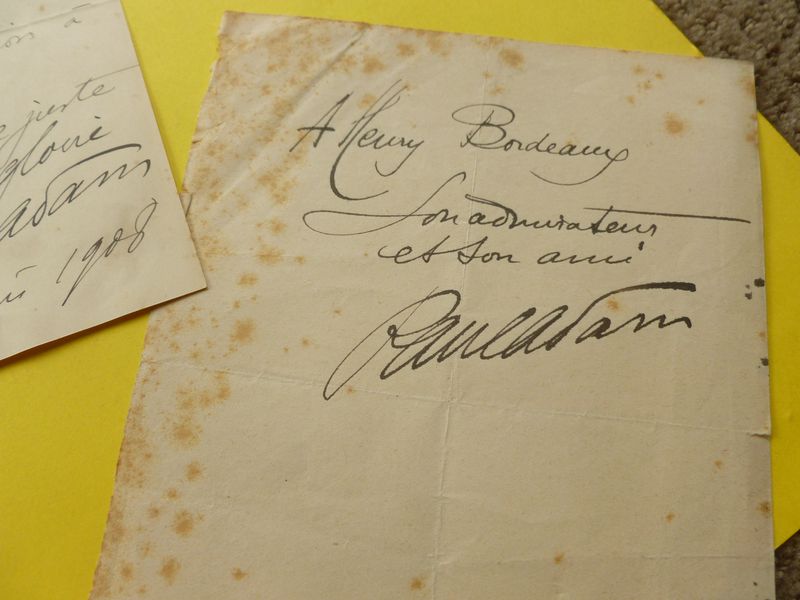 à
juste
gloire
Adam
1908
A Henry Bordeaux
Son admirateur
et son ami
Paul Adam